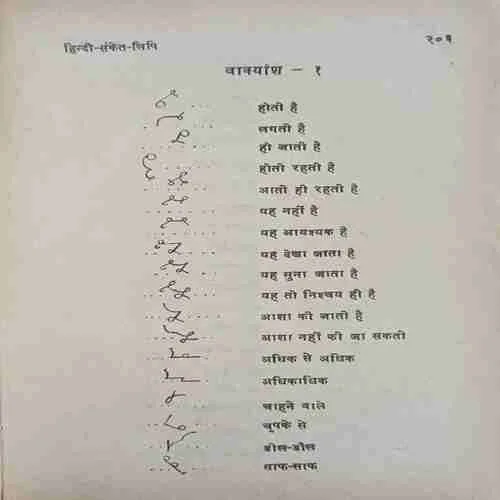 हिन्दी-संकेत-लिपि २०३
वाक्यांश – १
होती है
लगती है
ही जाती है
होती रहती है
आती ही रहती है
यह नहीं है
यह आवश्यक है
यह देखा जाता है
यह सुना जाता है
यह तो निश्चय ही है
आशा की जाती है
आशा नहीं की जा सकती
अधिक से अधिक
अधिकाधिक
चाहने वाले
चुपके से
डील-डौल
साफ-साफ